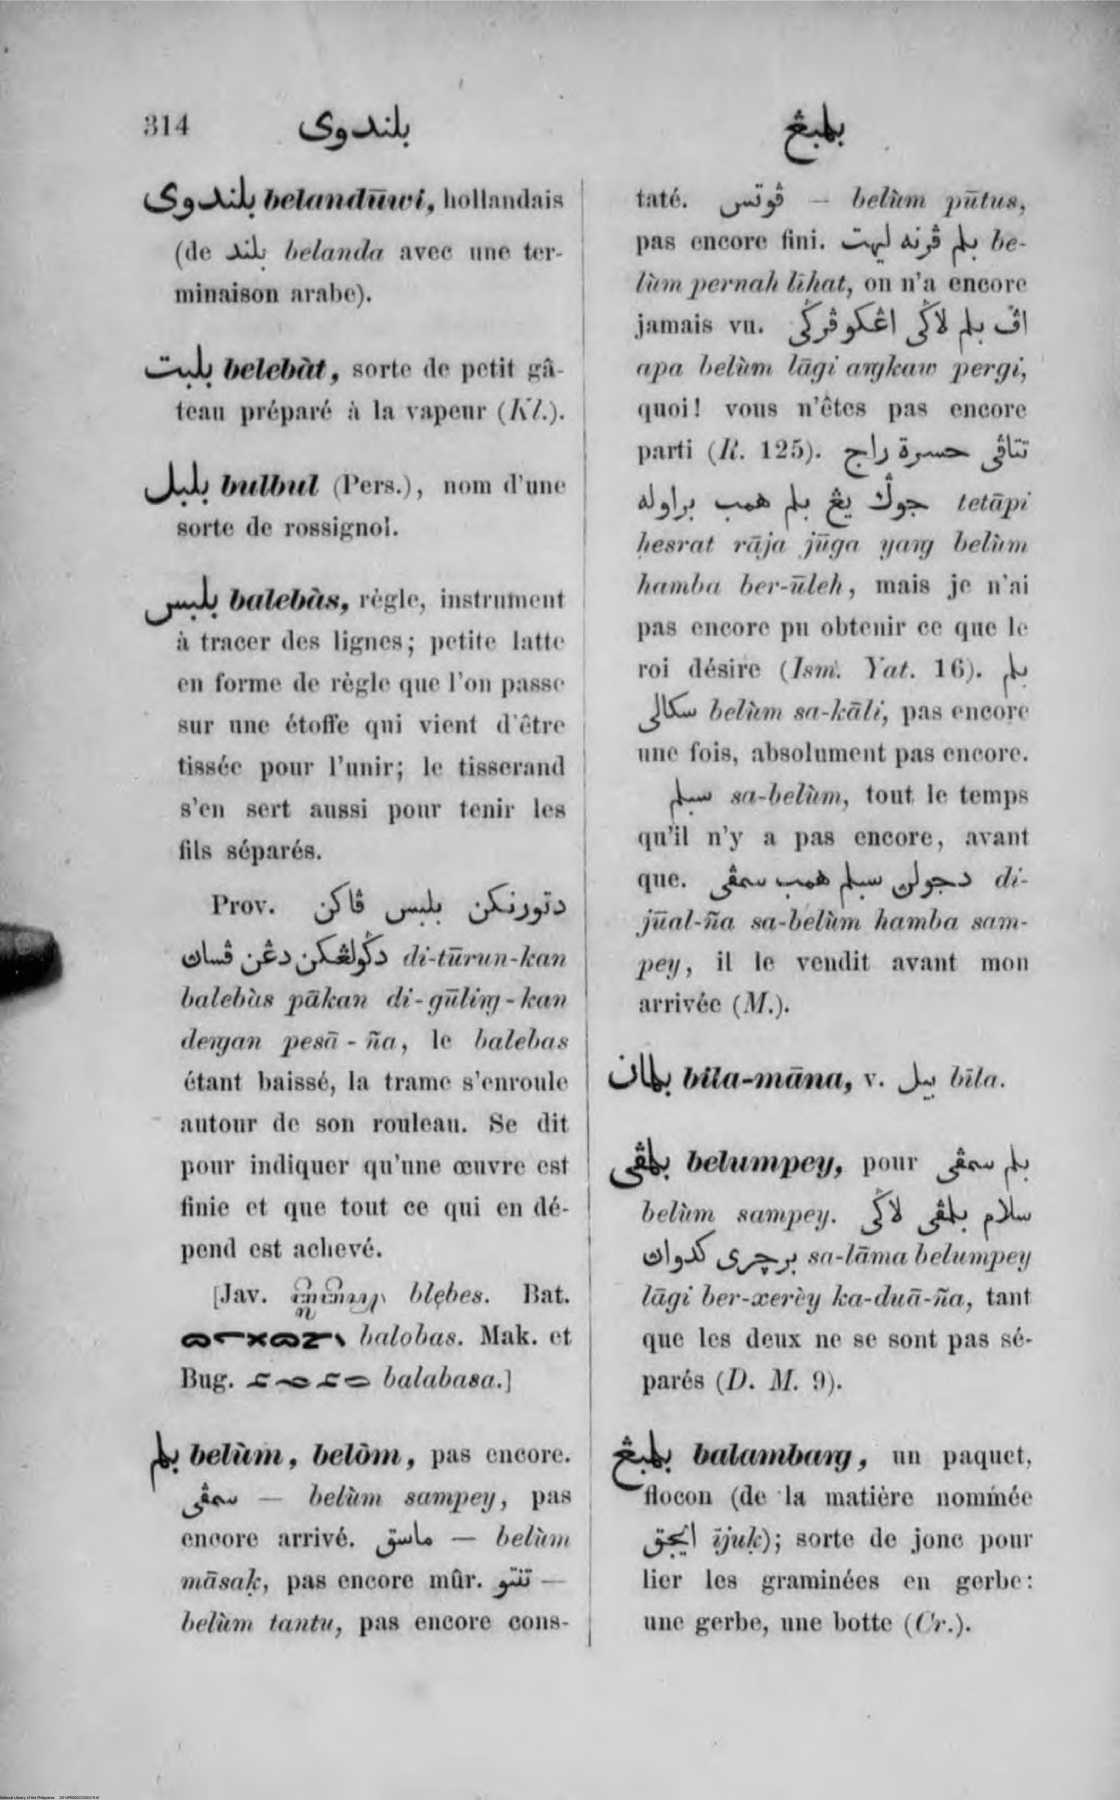 314 بلندوى بلمبڠ
بلندوى belandūwi, hollandais
(de بلند belanda avec une ter-
minaison arabe).
بلبت belebàt, sorte de petit gâ-
teau préparé à la vapeur (Kl.).
بلبل bulbul (Pers.), nom d'une
sorte de rossignol.
بلبس balebàs, règle, instrument
à tracer des lignes; petite latte
en forme de règle que l'on passe
sur une étoffe qui vient d'être
tissée pour l'unir; le tisserand
s'en sert aussi pour tenir les
fils séparés.
Prov. دتورنكن بلبس ڤاكن
دݢولڠكن دڠن ڤسان di-tūrun-kan
balebàs pākan di-gūliŋ-kan
deŋan pesā-ña, le balebas
étant baissé, la trame s'enroule
autour de son rouleau. Se dit
pour indiquer qu'une œuvre est
finie et que tout ce qui en dé-
pend est achevé.
[Jav. blębes. Bat.
balobas. Mak. et
Bug. balabasa.]
بلم belùm, belòm, pas encore.
سمڤى — belùm sampey, pas
encore arrivé. ماسق — belùm
māsaḳ, pas encore mûr. تنتو —
belùm tantu, pas encore cons-
taté. ڤوتس — belùm pūtus,
pas encore fini. بلم ڤرنه ليهت be-
lùm pernah līhat, on n'a encore
jamais vu. اڤ بلم لاݢى اڠكو ڤرݢى
apa belùm lāgi aŋkaw pergi,
quoi! vous n'êtes pas encore
parti (R. 125). تتاڤى حسرة راج
جوݢ يڠ بلم همب براوله tetāpi
ḥesrat rāja jūga yaŋ belùm
hamba ber-ūleh, mais je n'ai
pas encore pu obtenir ce que le
roi désire (Ism. Yat. 16). بلم
سكالى belùm sa-kāli, pas encore
une fois, absolument pas encore.
سبلم sa-belùm, tout le temps
qu'il n'y a pas encore, avant
que. دجولن سبلم همب سمڤى di-
jūal-ña sa-belùm hamba sam-
pey, il le vendit avant mon
arrivée (M.).
بلمان bīla-māna, v. بيل bīla.
بلمڤى belumpey, pour بلم سمڤى
belùm sampey. سلام بلمڤى لاݢى
برچرى كدوان sa-lāma belumpey
lāgi ber-xerèy ka-duā-ña, tant
que les deux ne se sont pas sé-
parés (D. M. 9).
بلمبڠ balambaŋ, un paquet,
flocon (de la matière nommée
ايجق ījuḳ); sorte de jonc pour
lier les graminées en gerbe:
une gerbe, une botte (Cr.).